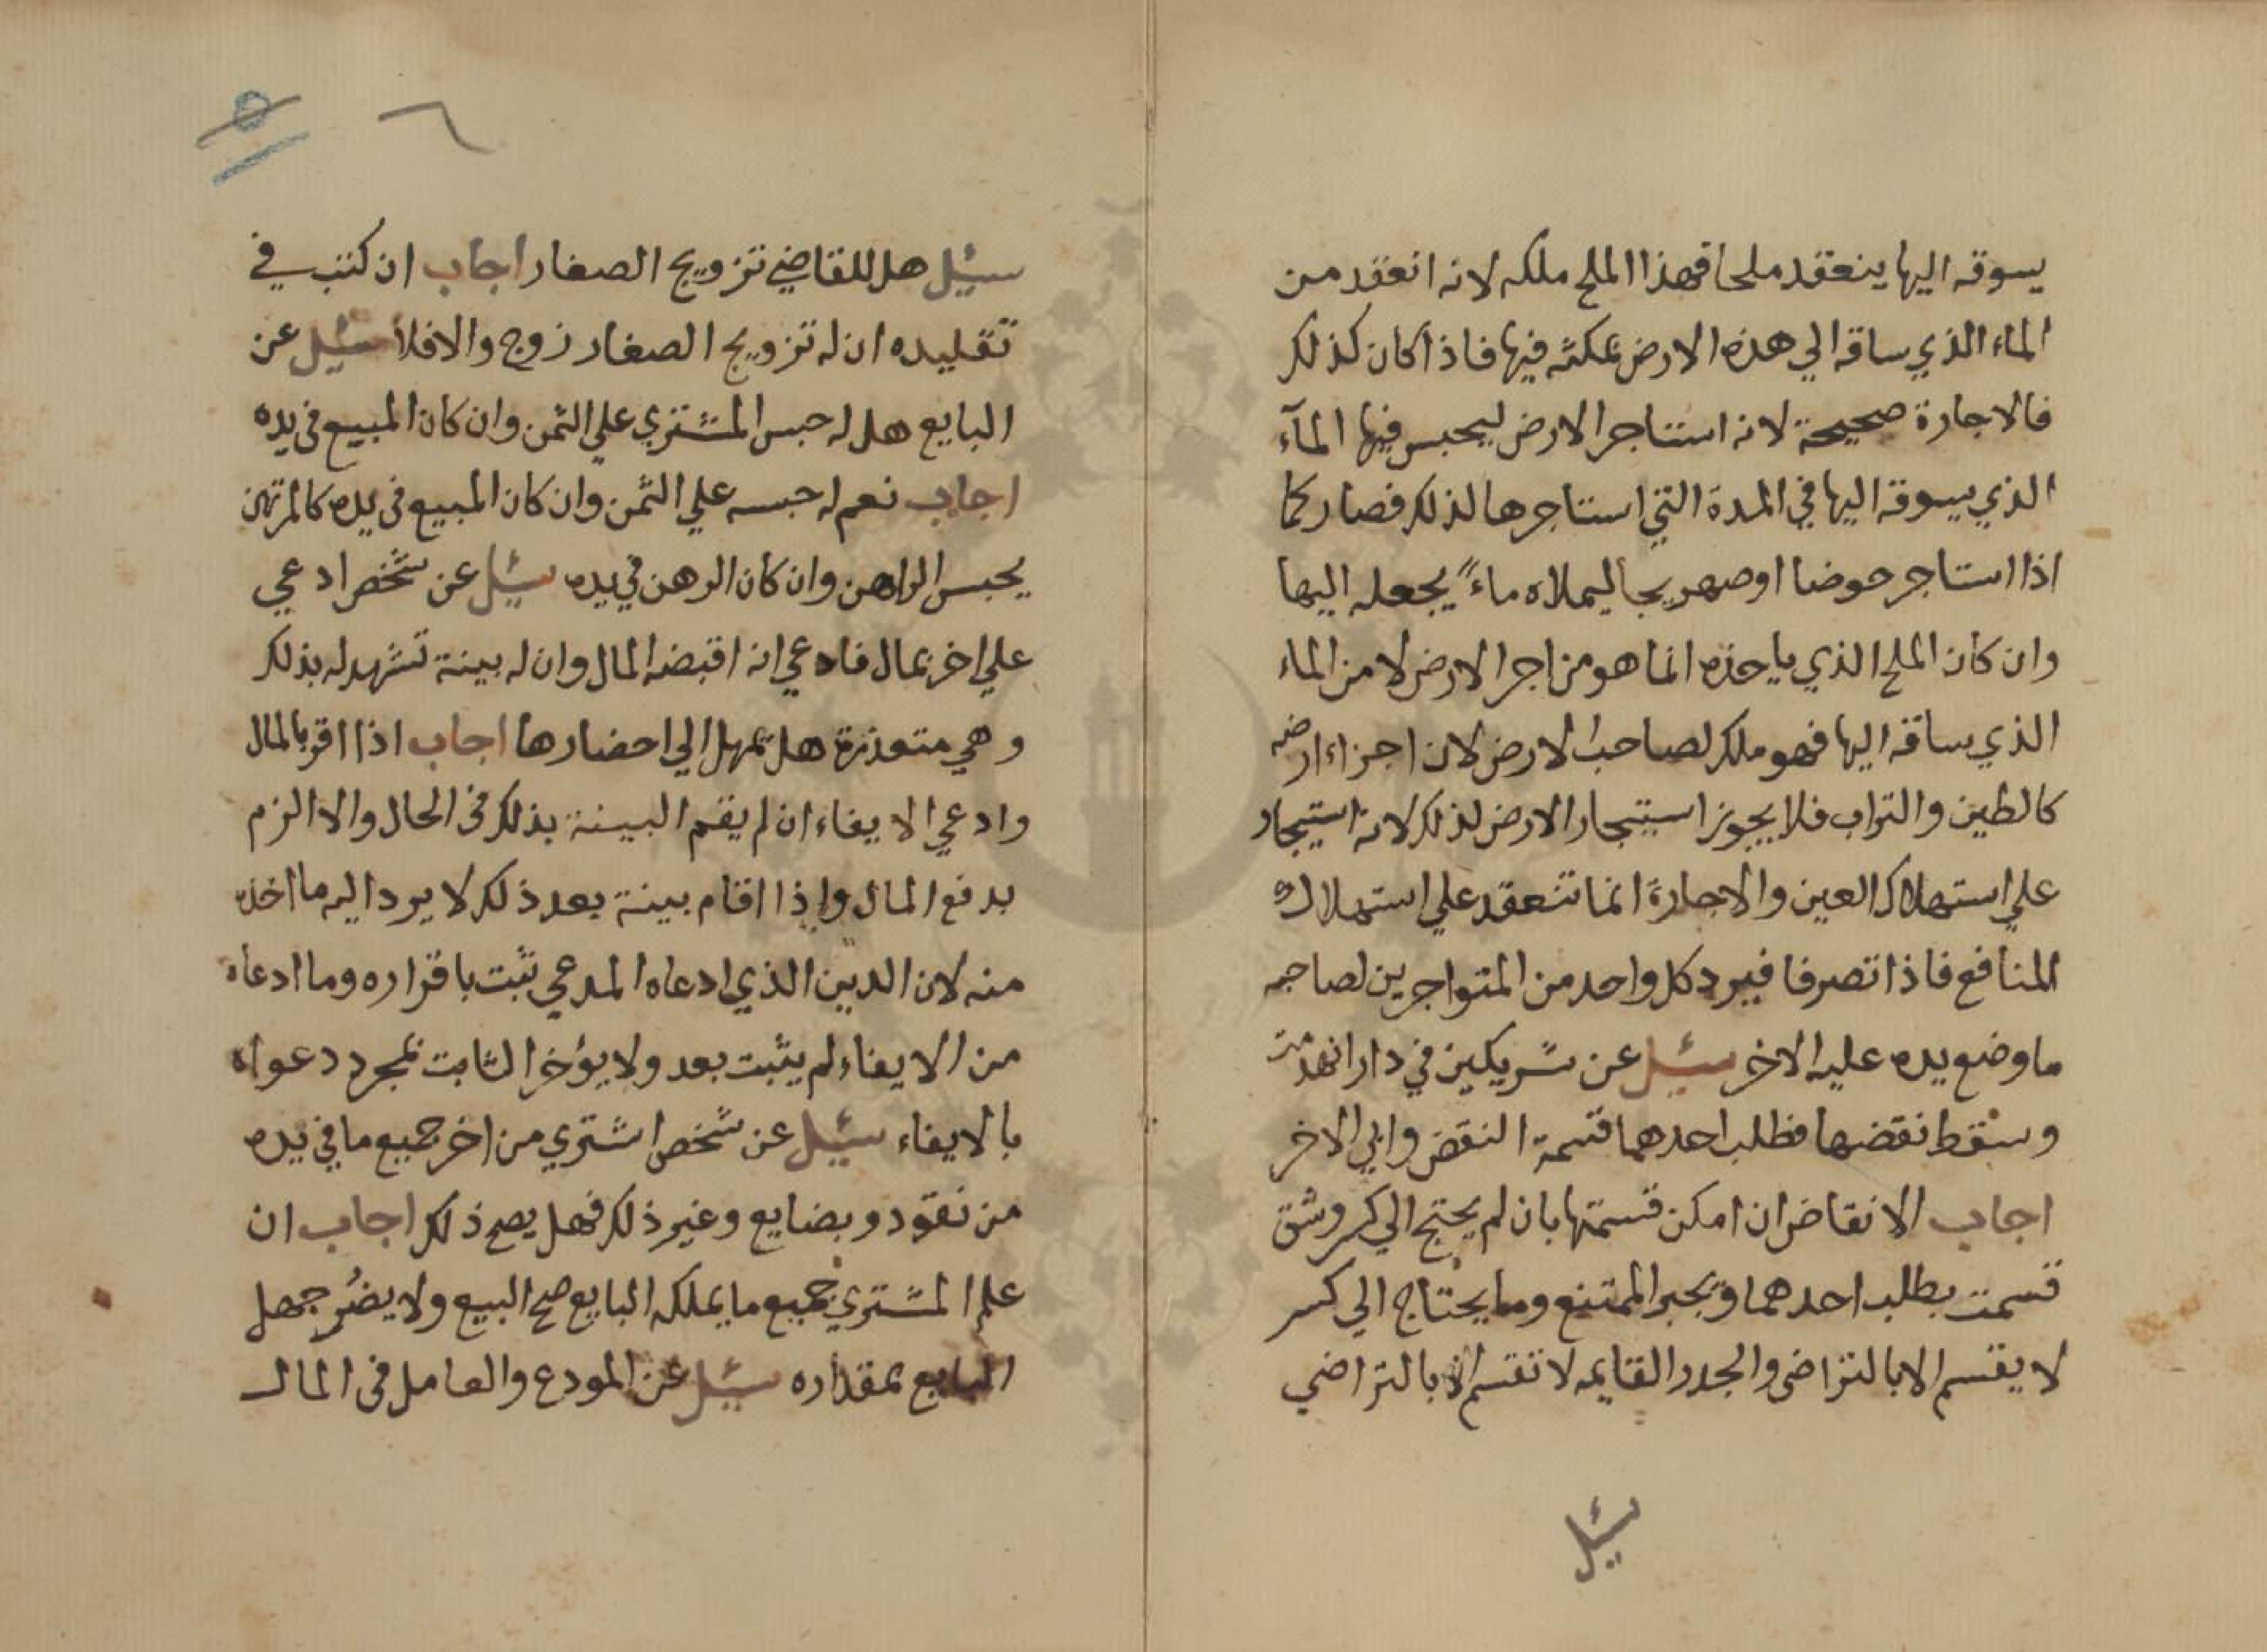 يسوقه اليها ينعقد ملحا فهذا الملح ملكه لانه انعقد من
الماء الذي ساقه الي هذه الارض بمكثه فيها فاذا كان كذلك
فالاجارة صحيحة لانه استاجر الارض ليحبس فيها المآء
الذي يسوقه اليها في المدة التي استاجرها لذلك فصار كما
اذا استاجر حوضا او صهريجا ليملاه ماءً يجعله اليها
وان كان الملح الذي ياخذه انما هو من اجر الارض لا من الماء
الذي ساقه اليها فهو ملك لصاحب الارض لان اجزاء ارضه
كالطين والتراب فلا يجوز استيجار الارض لذلك لانه استيجار
علي استهلاك العين والاجارة انما تنعقد علي استهلاك
المنافع فاذا تصرفا فيرد كل واحد من المتواجرين لصاحبه
ما وضع يده عليه الاخر سئيل عن شريكين في دار انهدمت
وسقط نقضها فطلب احدهما قسمة النقض وابي الاخر
اجاب الانقاض ان امكن قسمتها بان لم يحتج الي كسر وشق
قسمت بطلب احدهما ويجبر الممتنع وما يحتاج الي كسر
لا يقسم الا بالتراضي والجدر القايمه لا تقسم الا بالتراضي
سئيل
٦
٥
سئيل هل للقاضي تزويج الصغار اجاب ان كتب في
تقليده ان له تزويج الصغار زوج والا فلا سئيل عن
البايع هل له حبس المشتري علي الثمن وان كان المبيع في يده
اجاب نعم له حبسه علي الثمن وان كان المبيع في يده كالمرتهن
يحبس الراهن وان كان الرهن في يده سئيل عن شخص ادعي
علي اخر بمال فادعي انه اقبضه المال وان له بينة تشهد له بذلك
وهي متعذرة هل يمهل الي احضارها اجاب اذا اقر بالمال
وادعي الايفاء ان لم يقم البينة بذلك في الحال والا الزم
بدفع المال واذا اقام بينة بعد ذلك لا يرد اليه ما اخذ
منه لان الدين الذي ادعاه المدعي ثبت باقراره وما ادعاه
من الايفاء لم يثبت بعد ولا يؤخر الثابت بمجرد دعواه
بالايفاء سئيل عن شخص اشتري من اخر جميع ما في يده
من نقود وبضايع وغير ذلك فهل يصح ذلك اجاب ان
علم المشتري جميع ما يملكه البايع صح البيع ولا يضُر جهل
البايع بمقداره سئيل عن المودع والعامل في المال